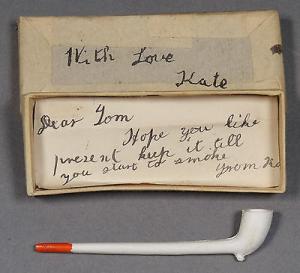 With Love
Kate
Dear Tom
Hope you like
present keep it till
you start to smoke
from